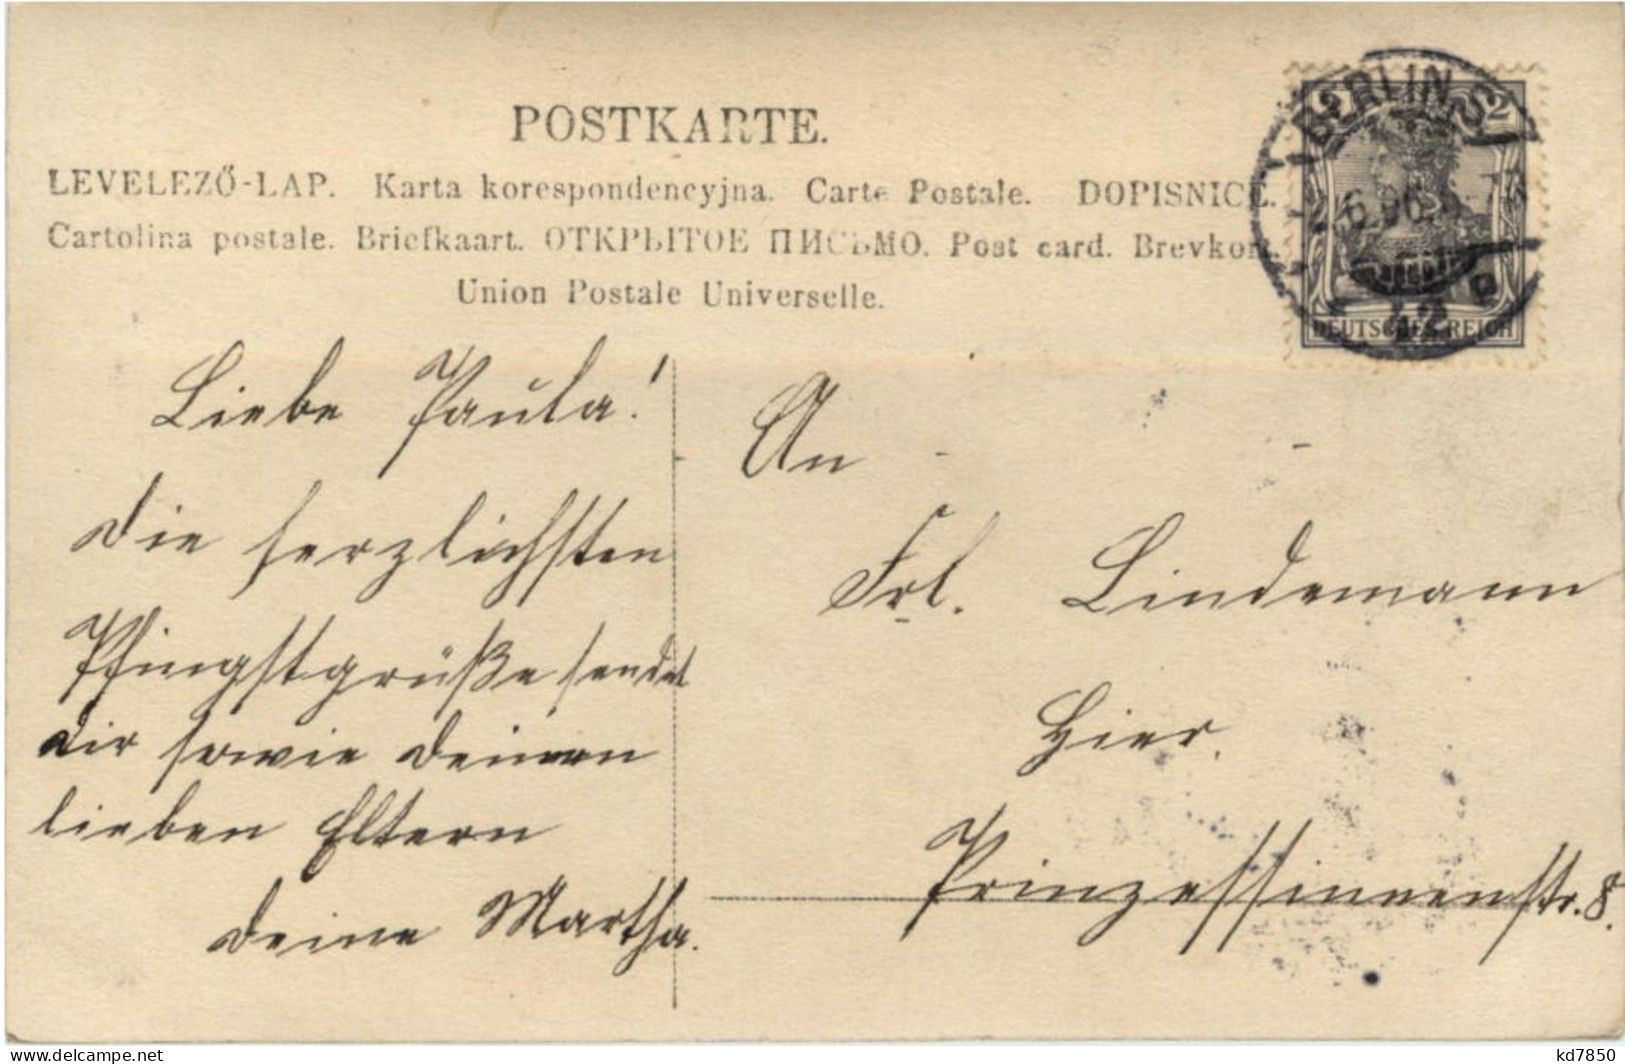 POSTKARTE.
LEVELEZŐ-LAP. Karta korespondencyjna. Carte Postale. DOPISNICE.
Cartolina postale. Briefkaart. ОТКРЫТОЕ ПИСЬМО. Post card. Brevkort.
Union Postale Universelle.
BERLIN S
2 2
6.06.
42
DEUTSCHES REICH
Liebe Paula!
die herzlichsten
Pfingstgrüße sendet
dir sowie deinen
lieben Eltern
deine Martha.
An
Frl. Lindemann
Hier.
Prinzessinnenstr. 8.
www.delcampe.net
kd7850